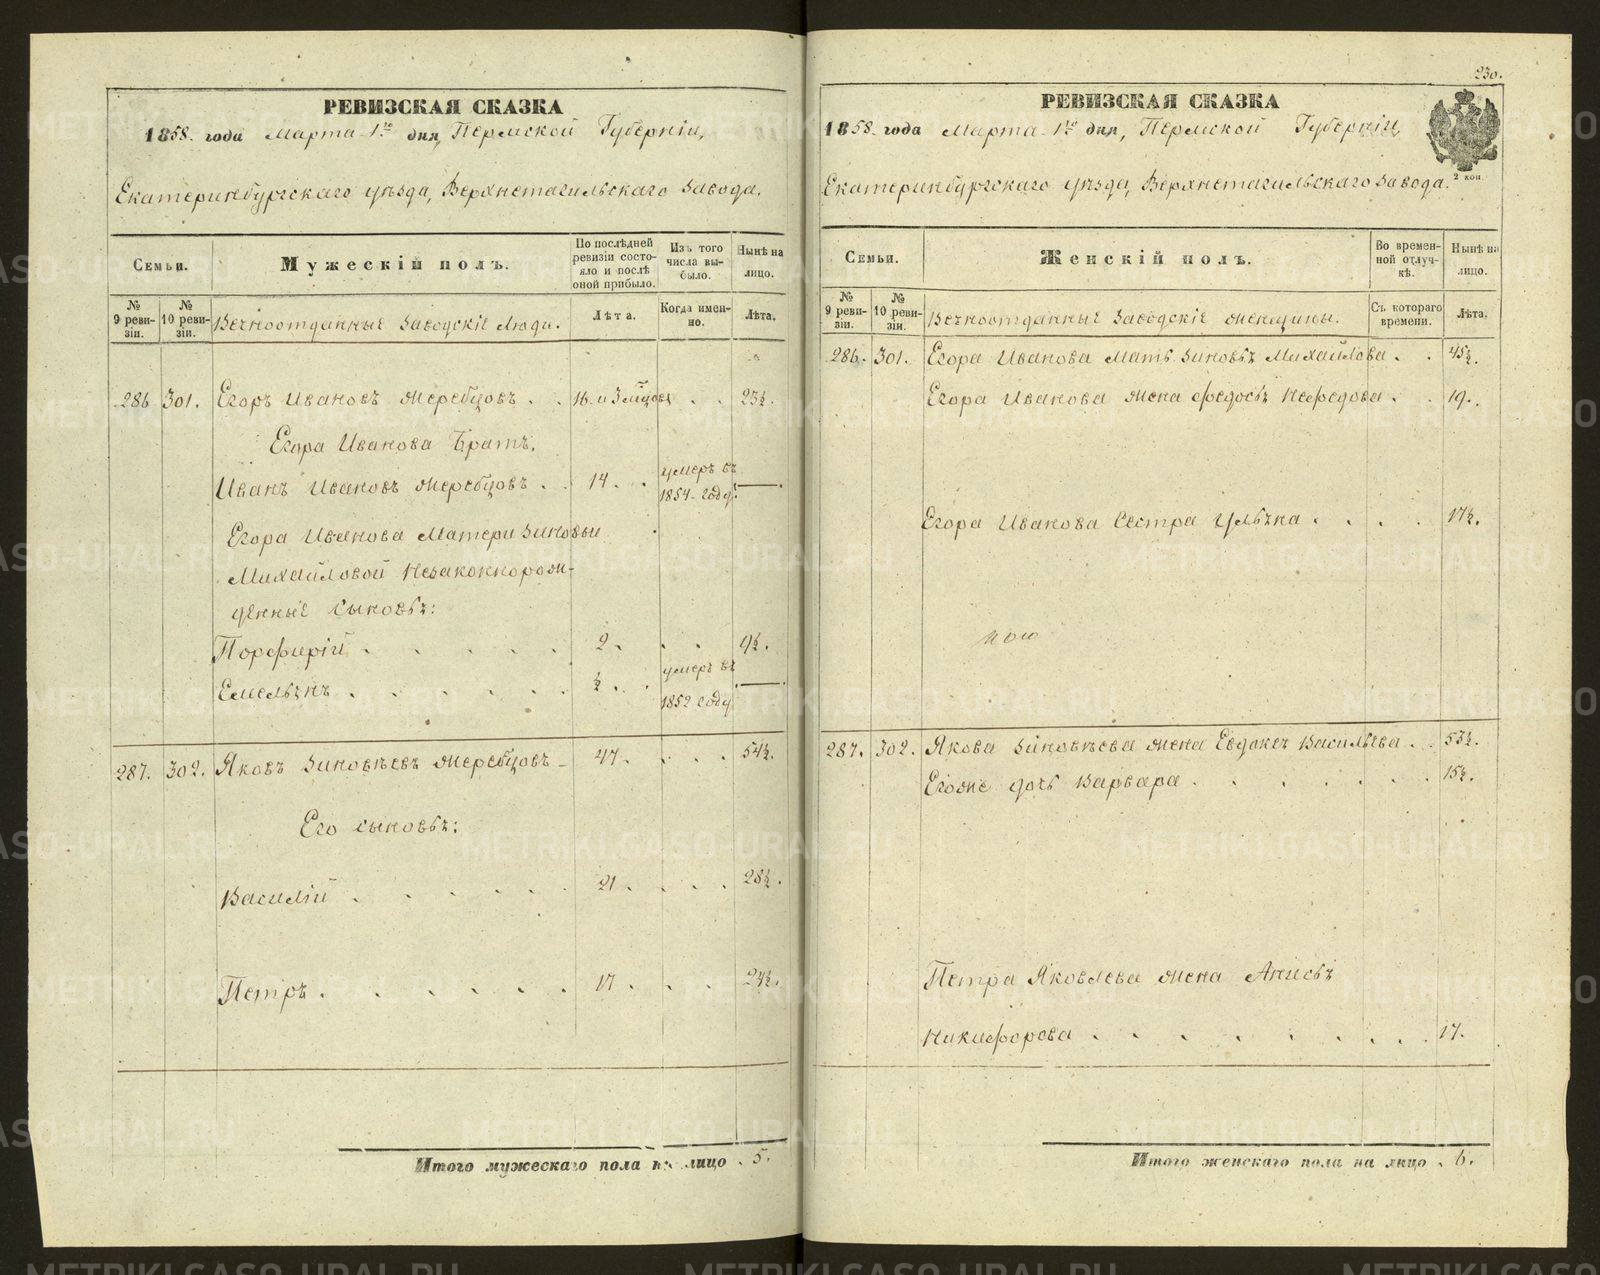 РЕВИЗСКАЯ СКАЗКА
1858. года Марта 1го дня, Пермской Губерніи,
Екатеринбургскаго уѣзда, Верхнетагильскаго Завода.
Семьи.
Мужескій полъ.
По послѣдней ревизіи состояло и послѣ оной прибыло.
Изъ того числа выбыло.
Нынѣ на лицо.
№ 9 ревизіи.
№ 10 ревизіи.
Вечноотданные Заводскіе Люди.
Лѣта.
Когда именно.
Лѣта.
286 301. Егоръ Ивановъ Жеребцовъ . . 16. и 3 мѣсяц . . 23½.
Егора Иванова Братъ.
Иванъ Ивановъ Жеребцовъ . . 14 . . умеръ въ 1854. году. —
Егора Иванова Матери Зиновьи
Михайловой Незаконнорож-
денные сыновья:
Порфирій . . . . . . 2 . . . 9½.
Емельянъ . . . . . . ½ . . умеръ въ 1852 году —
287. 302. Яковъ Зиновьевъ Жеребцовъ - 47. . . . 54½.
Его сыновья:
Василій . . . . . . 21 . . . . 28½.
Петръ . . . . . . 17 . . . . 24½.
Итого мужескаго пола на лицо . 5.
230.
РЕВИЗСКАЯ СКАЗКА
1858. года Марта 1го дня, Пермской Губерніи,
Екатеринбургскаго уѣзда, Верхнетагильскаго Завода.
2 коп.
Семьи.
Женскій полъ.
Во временной отлучкѣ.
Нынѣ на лицо.
№ 9 ревизіи.
№ 10 ревизіи.
Вечноотданные Заводскіе женщины.
Съ котораго времени.
Лѣта.
286. 301. Егора Иванова Мать Зиновья Михайлова . . 45½.
Егора Иванова жена Федосья Нефедова . . 19.
Егора Иванова Сестра Ульяна . . . . 17½.
287. 302. Якова Зиновьева жена Евдокея Васильева . . 53½.
Егоже дочь Варвара . . . . . . 15½.
Петра Яковлева жена Анисья
Никифорова . . . . . . . . . 17.
Итого женскаго пола на лицо . 6.
METRIKI.GASO-URAL.RU